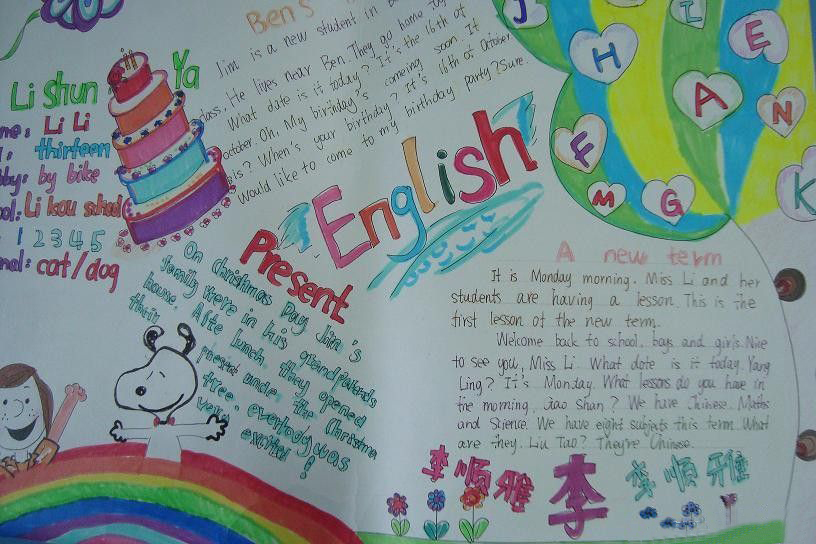 Ben's
Jim is a new student in
class. He lives near Ben. They go home
What date is it today? It's the 16th of
October. Oh, My birthday's comeing soon. It
is? When's your birthday? It's 16th of October.
Would like to come to my birthday party? Sure.
Li Shun Ya
me: Li Li
: thirteen
bby: by bike
ool: Li kou school
: 1 2 3 4 5
mal: cat/dog
English
Present
On Christmas Day Jim's
family were in his grandparents
house. Afte lunch. they opened
their present unde the Christma
tree. everbody was
very excited!
J
H
I
E
A
N
F
M
G
K
A new term
It is Monday morning. Miss Li and her
students are having a lesson. This is the
first lesson of the new term.
Welcome back to school, boys and girls. Nice
to see you, Miss Li. What date is it today. Yang
Ling? It's Monday. What lessons do you have in
the morning, Gao Shan? We have Chinese. Maths
and Science. We have eight subjects this term. What
are they. Liu Tao? They're Chinese.
李顺雅
李
李顺雅